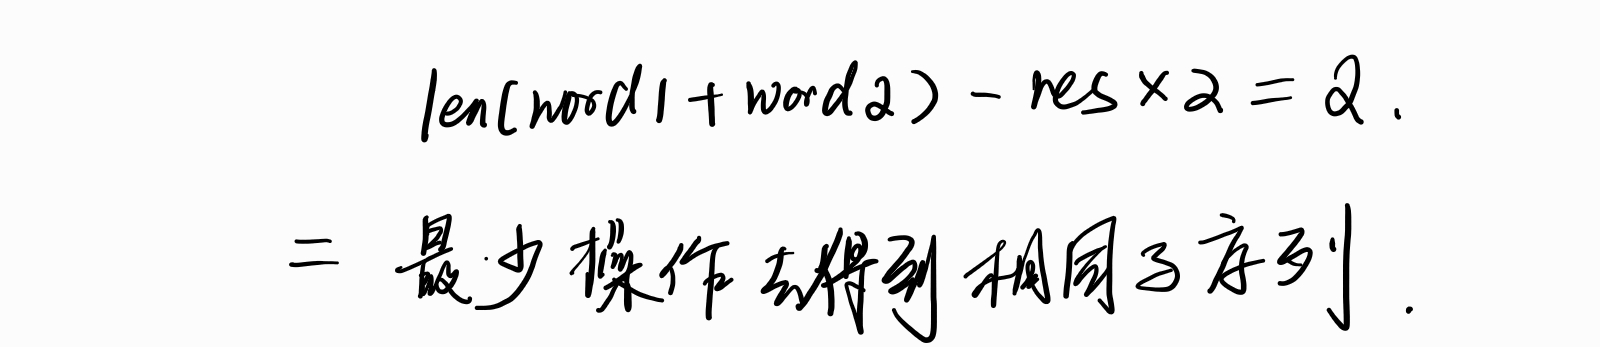 len(word1+word2)-res×2=2.
=最少操作去得到相同子序列.